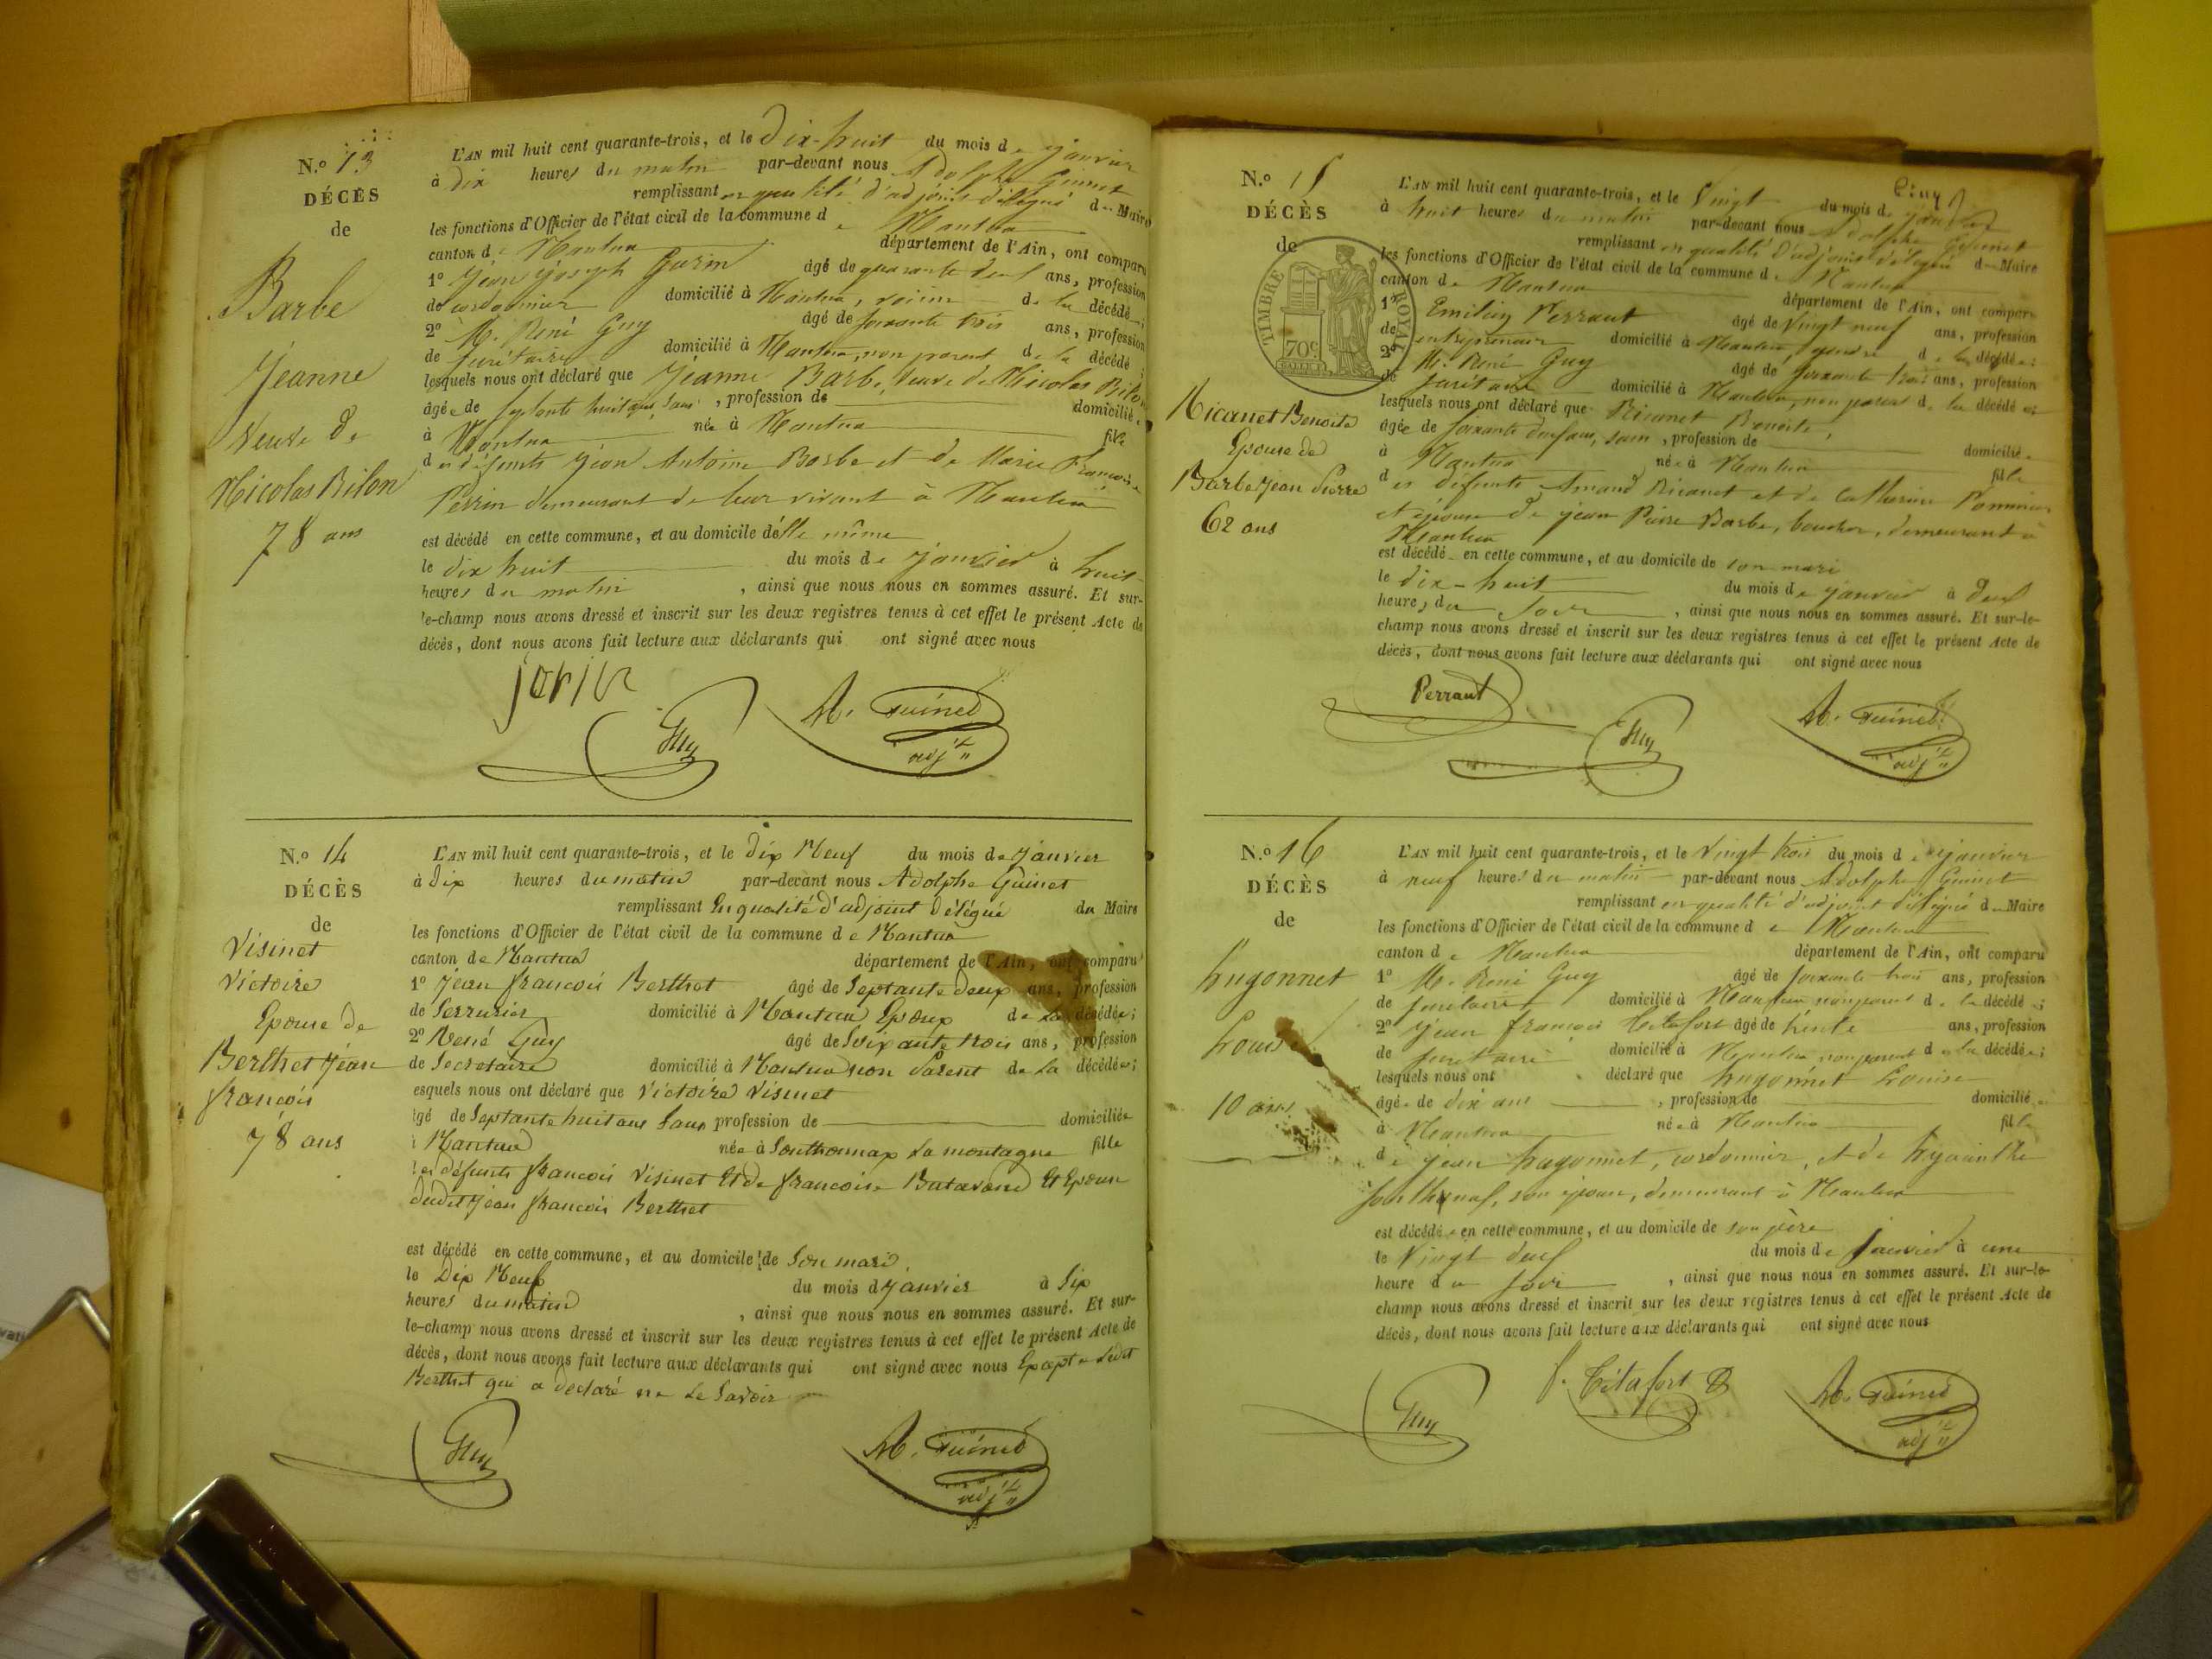 N.º 13
DÉCÈS
de
Barbe
Jeanne
Veuve de
Nicolas Bilon
78 ans
L'AN mil huit cent quarante-trois, et le Dix-huit du mois de janvier
à dix heures du matin par-devant nous Adolphe Guinet
remplissant en qualité d'adjoint délégué du Maire
les fonctions d'Officier de l'état civil de la commune de Nantua
canton de Nantua département de l'Ain, ont comparu
1º Jean Joseph âgé de quarante deux ans, profession
de cordonnier domicilié à Nantua, voisin de la décédée;
2º M. René Guy âgé de soixante trois ans, profession
de secrétaire domicilié à Nantua, non parent de la décédé;
lesquels nous ont déclaré que Jeanne Barbe, veuve de Nicolas Bilon
âgée de septante huit ans, sans, profession de domiciliée
à Nantua née à Nantua fille
des défunts Jean Antoine Barbe et de Marie Françoise
Perrin demeurant de leur vivant à Nantua
est décédé en cette commune, et au domicile d'elle même
le dix huit du mois de janvier à huit
heures du matin, ainsi que nous nous en sommes assuré. Et sur-
le-champ nous avons dressé et inscrit sur les deux registres tenus à cet effet le présent Acte de
décès, dont nous avons fait lecture aux déclarants qui ont signé avec nous
Guy
A. Guinet
adj.t
N.º 14
DÉCÈS
de
Visinet
Victoire
Epouse de
Berthet Jean
françois
78 ans
L'AN mil huit cent quarante-trois, et le Dix Neuf du mois de Janvier
à Dix heures du matin par-devant nous Adolphe Guinet
remplissant En qualité d'adjoint Délégué du Maire
les fonctions d'Officier de l'état civil de la commune de Nantua
canton de Nantua département de l'Ain, ont comparu
1º Jean françois Berthet âgé de Septante deux ans, profession
de Serrurier domicilié à Nantua Epoux de La décédée;
2º René Guy âgé de Soixante trois ans, profession
de Secretaire domicilié à Nantua non Parent de La décédée;
esquels nous ont déclaré que Victoire Visinet
âgé de Septante huit ans Sans profession de domiciliée
à Nantua née à Sonthonnax La montagne fille
des défunts françois Visinet Et de françoise Butavand Et Epouse
dudit Jean françois Berthet
est décédé en cette commune, et au domicile de Son mari
le Dix Neuf du mois d Janvier à Six
heures du matin, ainsi que nous nous en sommes assuré. Et sur-
le-champ nous avons dressé et inscrit sur les deux registres tenus à cet effet le présent Acte de
décès, dont nous avons fait lecture aux déclarants qui ont signé avec nous Excepté Ledit
Berthet qui a déclaré ne Le Savoir
Guy
A. Guinet
adj.t
N.º 15
DÉCÈS
de
TIMBRE ROYAL
70c.
Ricanet Benoite
Epouse de
Barbe Jean Pierre
62 ans
L'AN mil huit cent quarante-trois, et le Vingt du mois de janvier
à huit heures du matin par-devant nous Adolphe Guinet
remplissant en qualité d'adjoint délégué du Maire
les fonctions d'Officier de l'état civil de la commune de Nantua
canton de Nantua département de l'Ain, ont comparu
1º Emilien Perraut âgé de vingt neuf ans, profession
de entrepreneur domicilié à Nantua, gendre de la décédée;
2º M. René Guy âgé de soixante trois ans, profession
de secrétaire domicilié à Nantua, non parent de la décédée
lesquels nous ont déclaré que Ricanet Benoite,
âgée de soixante deux ans, sans, profession de
à Nantua née à Nantua domiciliée fille
des défunts Amand Ricanet et de Catherine
et épouse de Jean Pierre Barbe, boucher, demeurant à
Nantua
est décédé en cette commune, et au domicile de son mari
le dix-huit du mois de janvier à deux
heures du soir, ainsi que nous nous en sommes assuré. Et sur-le-
champ nous avons dressé et inscrit sur les deux registres tenus à cet effet le présent Acte de
décès, dont nous avons fait lecture aux déclarants qui ont signé avec nous
Perraut
Guy
A. Guinet
adj.t
N.º 16
DÉCÈS
de
hugonnet
Louise
10 ans
L'AN mil huit cent quarante-trois, et le Vingt trois du mois de janvier
à neuf heures du matin par-devant nous Adolphe Guinet
remplissant en qualité d'adjoint délégué du Maire
les fonctions d'Officier de l'état civil de la commune de Nantua
canton de Nantua département de l'Ain, ont comparu
1º M. René Guy âgé de soixante trois ans, profession
de secrétaire domicilié à Nantua non parent de la décédée;
2º Jean françois Tétafort âgé de trente ans, profession
de secrétaire domicilié à Nantua, non parent de la décédée;
lesquels nous ont déclaré que hugonnet Louise
âgée de dix ans, profession de domiciliée
à Nantua née à Nantua fille
de Jean hugonnet, cordonnier, et de hyacinthe
Sonthonax, son épouse, demeurant à Nantua
est décédée en cette commune, et au domicile de son père
le vingt deux du mois de Janvier à une
heure du soir, ainsi que nous nous en sommes assuré. Et sur-le-
champ nous avons dressé et inscrit sur les deux registres tenus à cet effet le présent Acte de
décès, dont nous avons fait lecture aux déclarants qui ont signé avec nous
Guy
f. Tétafort
A. Guinet
adj.t